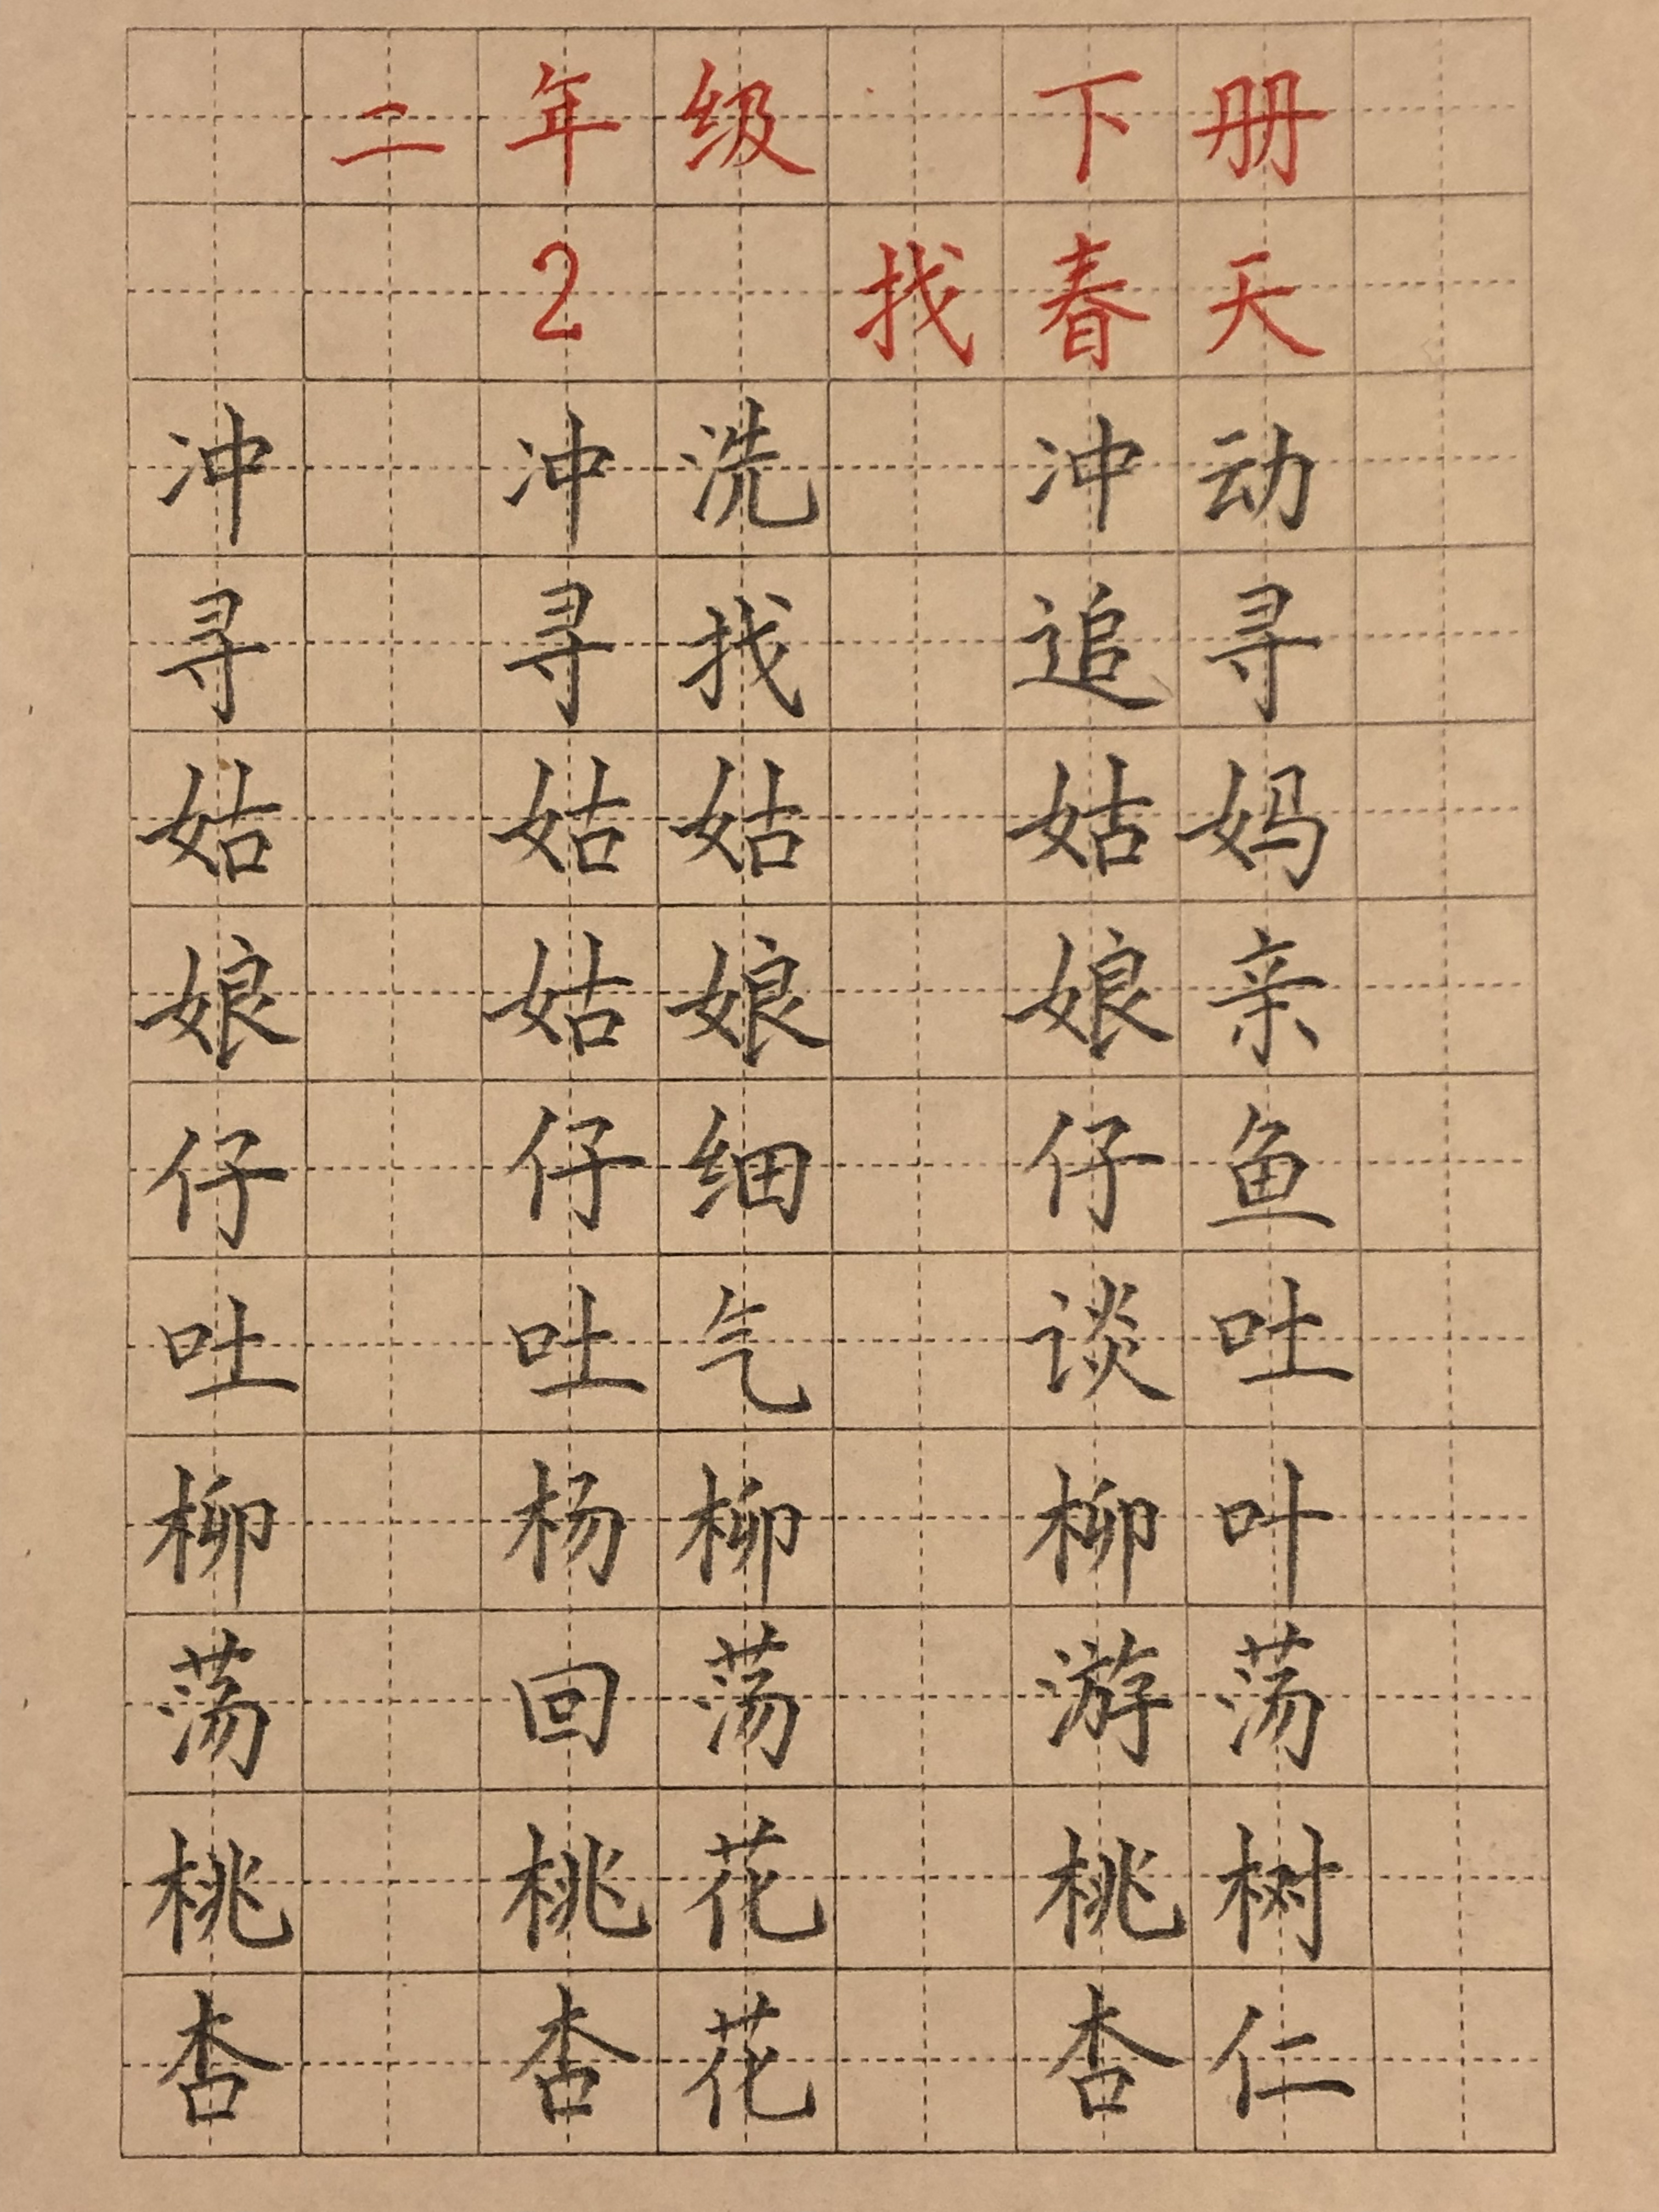 二年级 下册
2 找春天
冲 冲洗 冲动
寻 寻找 追寻
姑 姑姑 姑妈
娘 姑娘 娘亲
仔 仔细 仔鱼
吐 吐气 谈吐
柳 杨柳 柳叶
荡 回荡 游荡
桃 桃花 桃树
杏 杏花 杏仁